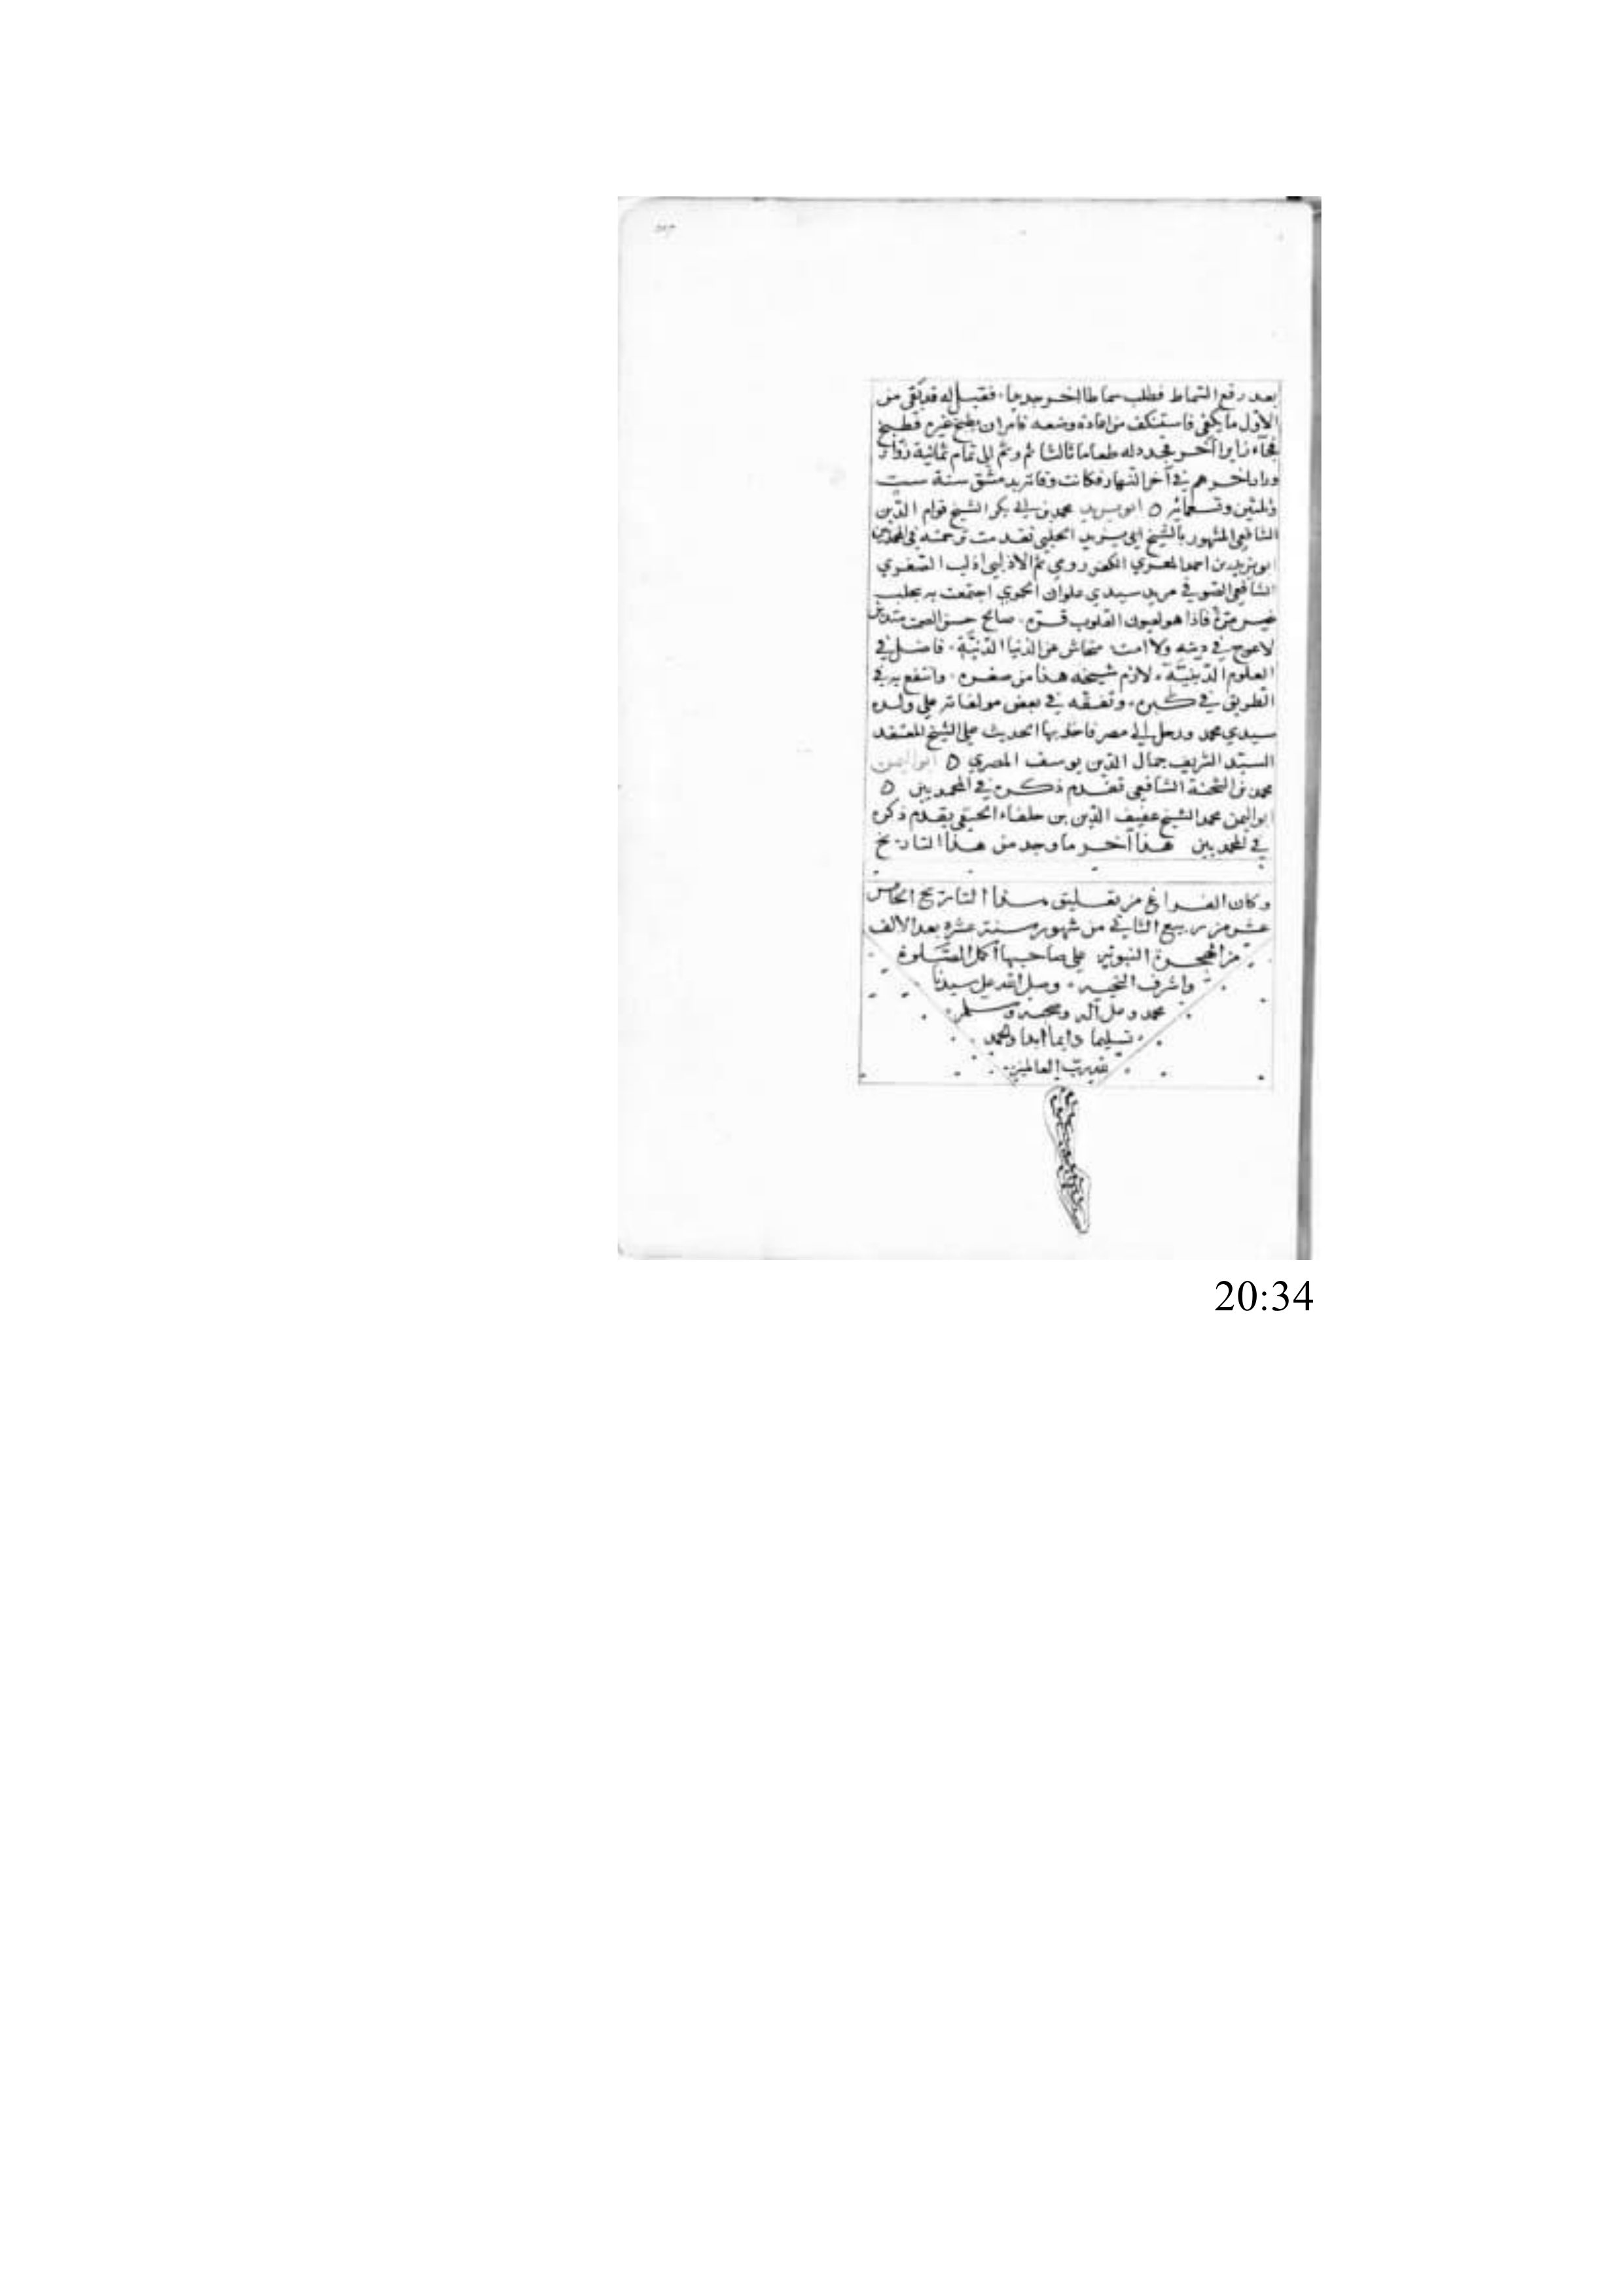 بعد رفع السماط فطلب سماطا اخر جديدا. فقيل له قد بقي من
الاول ما يكفي فاستنكف من اعادة وضعه فامر ان يطبخ غيره فطبخ
فجاء زايرا آخر فجدد له طعاما ثالثا ثم وثم الى تمام ثمانية زوار
وزاد اخرهم في آخر النهار فكانت وفاته بدمشق سنة ست
وثلثين وتسعمائه ٥ ابو يزيد محمد بن ابي بكر الشيخ قوام الدين
الشافعي المشهور بالشيخ ابي يزيد الحلبي تقدمت ترجمته في المحمدين
ابو يزيد بن احمد المعري الكفررومي ثم الادلبي ادلب الصغري
الشافعي الصوفي مريد سيدي علوان الحموي اجتمعت به بحلب
غير مرة فاذا هو لعيون القلوب قره. صالح حسن السمت متدين
لا عوج في دينه ولا امت. منحاش عن الدنيا الدنية. فاضل في
العلوم الدينية. لازم شيخه هذا من صغره. وانتفع به في
الطريق في كبره. وتفقه في بعض مولفاته على ولده
سيدي محمد ورحل الى مصر فاخذ بها الحديث على الشيخ المعتقد
السيد الشريف جمال الدين يوسف المصري ٥ ابو اليمن
محمد بن الشحنة الشافعي تقدم ذكره في المحمديين ٥
ابو اليمن محمد الشيخ عفيف الدين بن حلفاء الحنفي يقدم ذكره
في المحمديين هذا آخر ما وجد من هذا التاريخ
وكان الفراغ من تعليق هذا التاريخ الخامس
عشر من ربيع الثاني من شهور سنة عشره بعد الالف
من الهجرة النبويه على صاحبها اكمل الصلوة
واشرف التحيه. وصلى الله على سيدنا
محمد وعلى آله وصحبه وسلم
تسليما دايما ابدا والحمد
لله رب العالمين
20:34